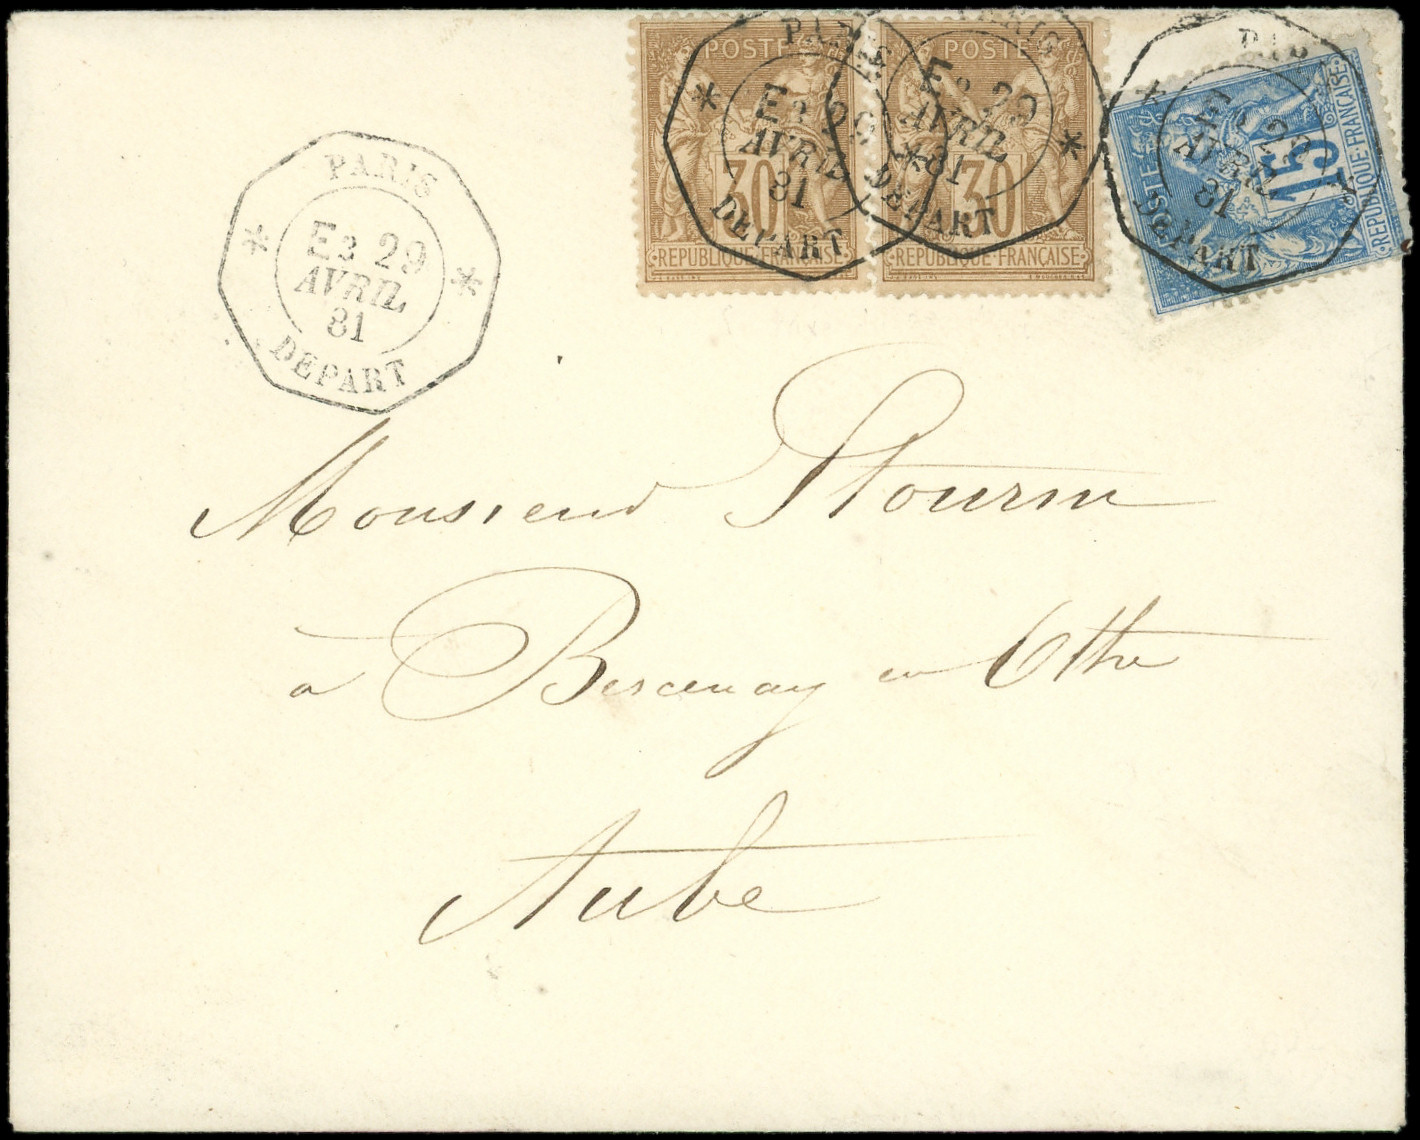 POSTE
30
REPUBLIQUE·FRANÇAISE
POSTE
30
REPUBLIQUE·FRANÇAISE
POSTE
15
REPUBLIQUE·FRANÇAISE
PARIS
E3 29
AVRIL
81
DEPART
PARIS
E3 29
AVRIL
81
DEPART
PARIS
E3 29
AVRIL
81
DEPART
PARIS
E3 29
AVRIL
81
DEPART
Monsieur Stourm
à Bercenay en Othe
Aube